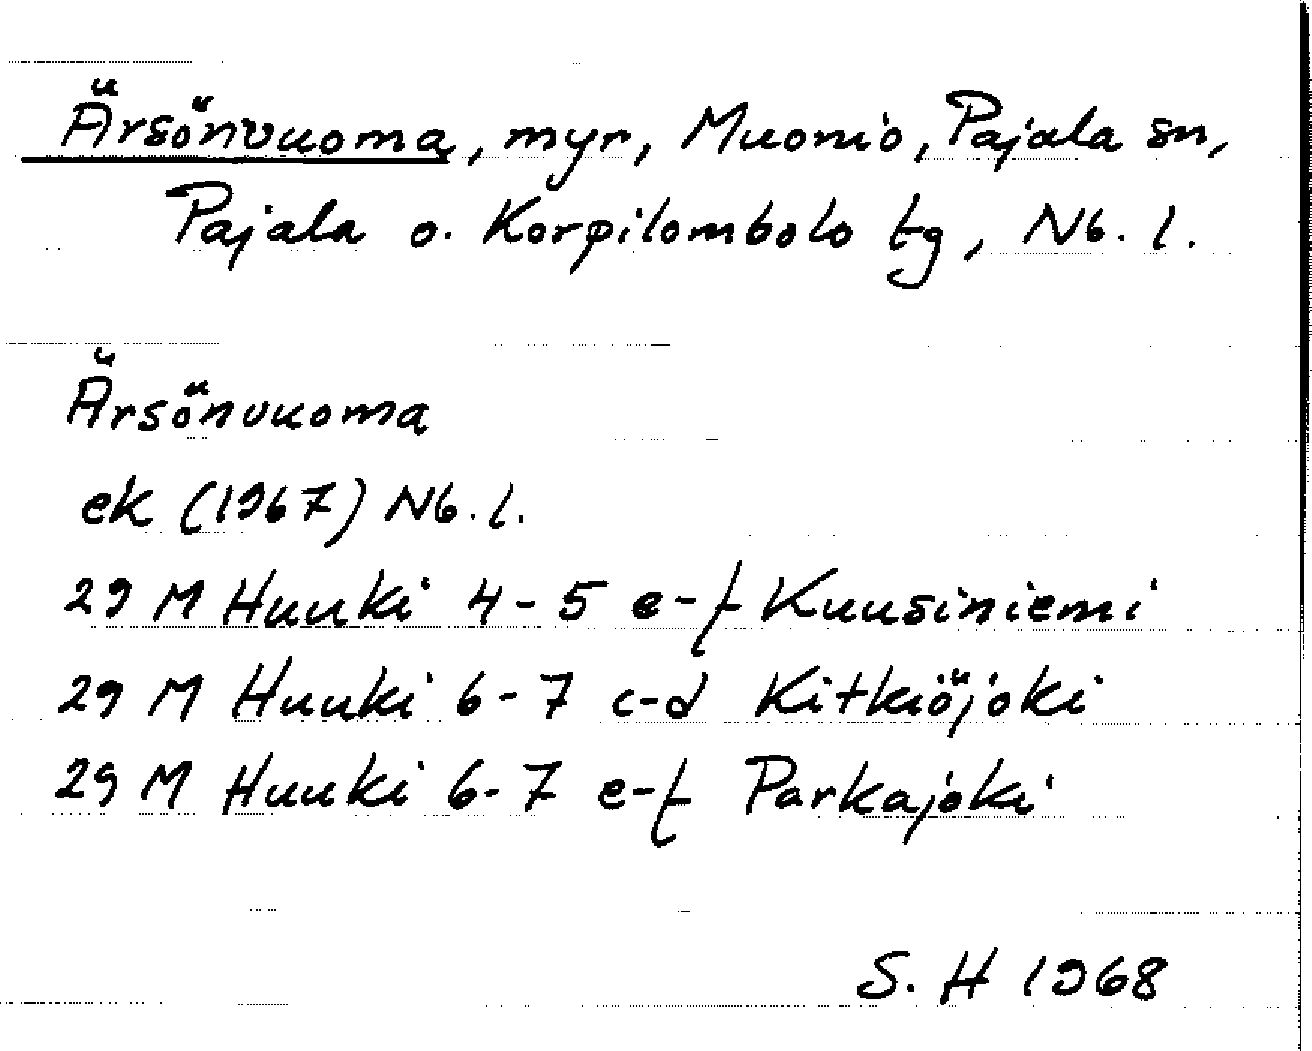 Ärsönvuoma, myr, Muonio, Pajala sn,
Pajala o. Korpilombolo tg, Nb. l.
Ärsönvuoma
ek (1967) Nb. l.
29 M Huuki 4-5 e-f Kuusiniemi
29 M Huuki 6-7 c-d Kitkiöjoki
29 M Huuki 6-7 e-f Parkajoki
S. H 1968